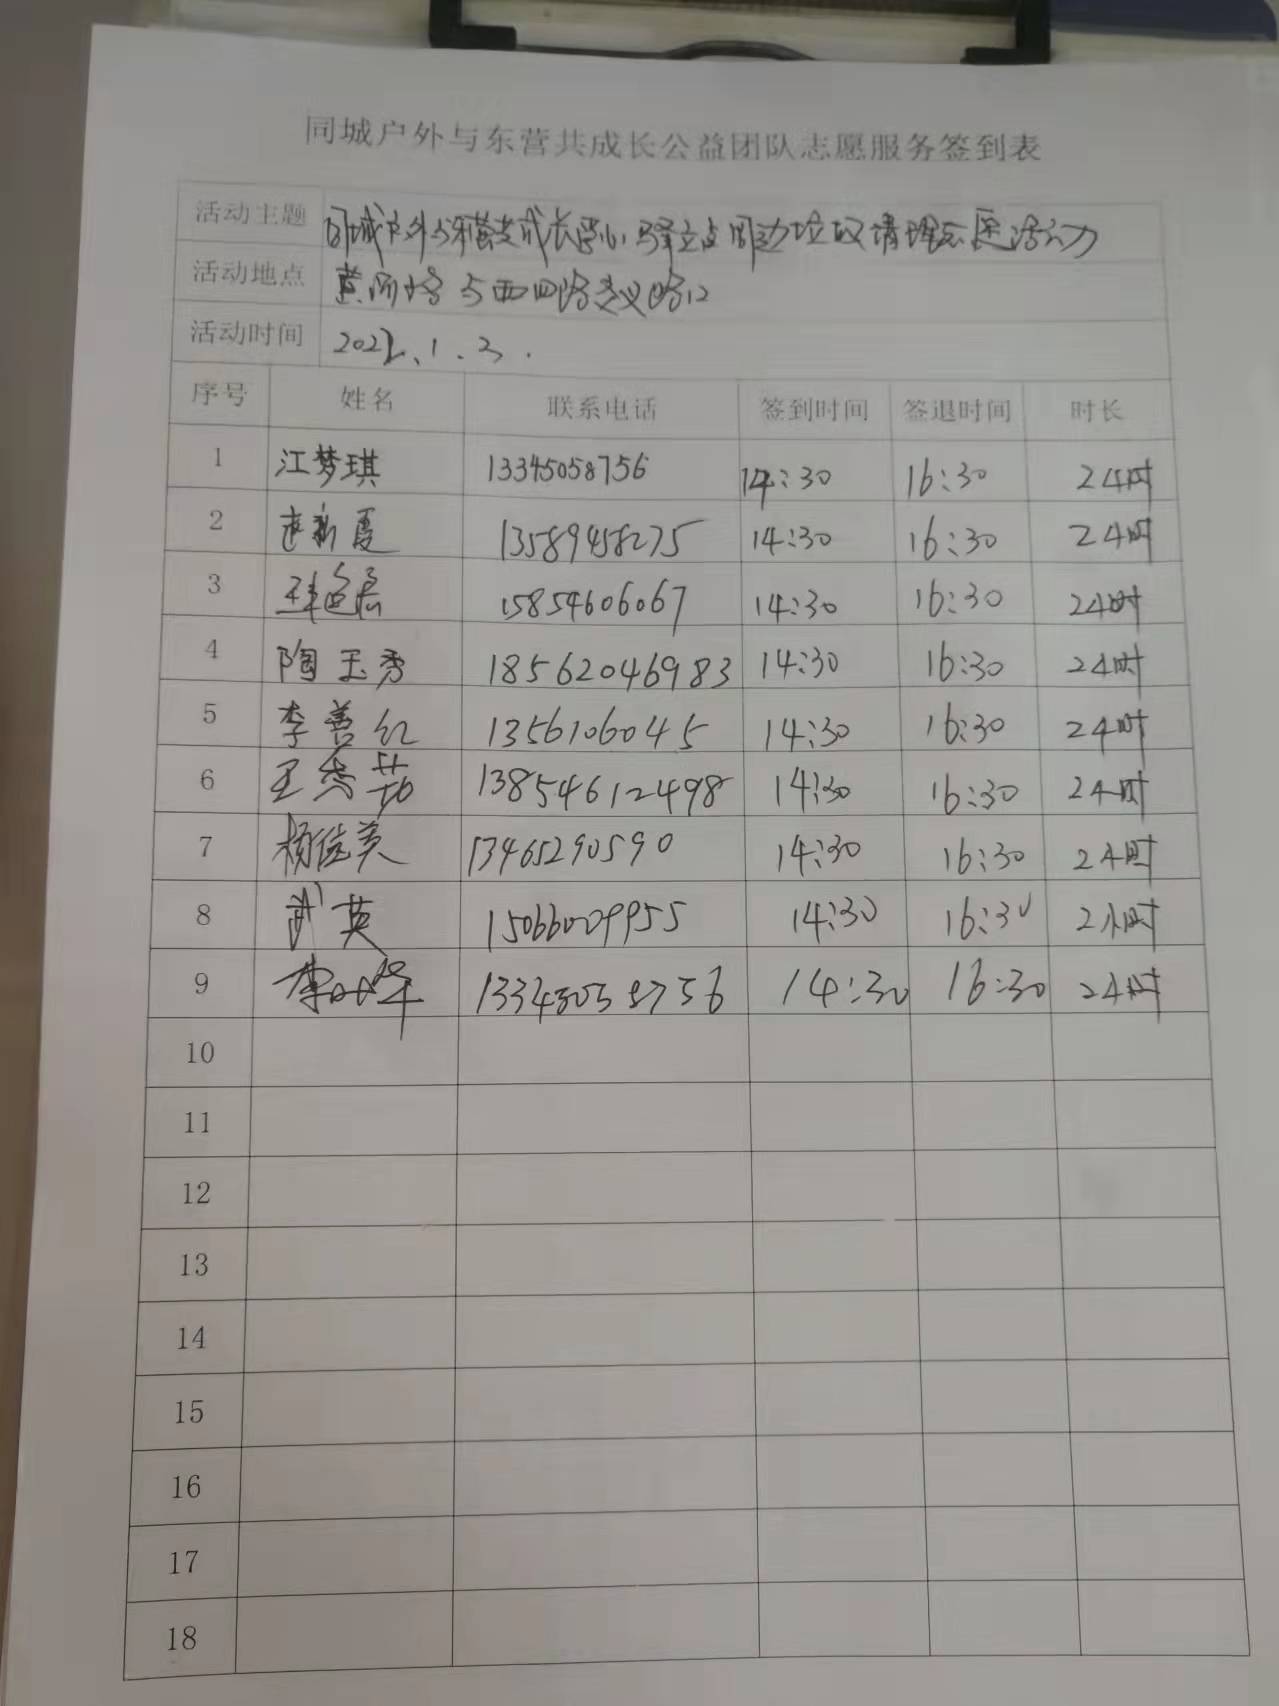 同城户外与东营共成长公益团队志愿服务签到表
活动主题 同城户外与东营共成长爱心驿站点周边垃圾清理志愿活动
活动地点 黄河路与西四路交叉路口
活动时间 2022.1.2.
序号 姓名 联系电话 签到时间 签退时间 时长
1 江梦琪 13345058756 14:30 16:30 2小时
2 新夏 13589458275 14:30 16:30 2小时
3 15854606067 14:30 16:30 2小时
4 陶玉秀 18562046983 14:30 16:30 2小时
5 李善红 1356106045 14:30 16:30 2小时
6 王秀茹 13854612498 14:30 16:30 2小时
7 杨俊英 13465290590 14:30 16:30 2小时
8 武英 15066009955 14:30 16:30 2小时
9 李 14:30 16:30 2小时
10
11
12
13
14
15
16
17
18